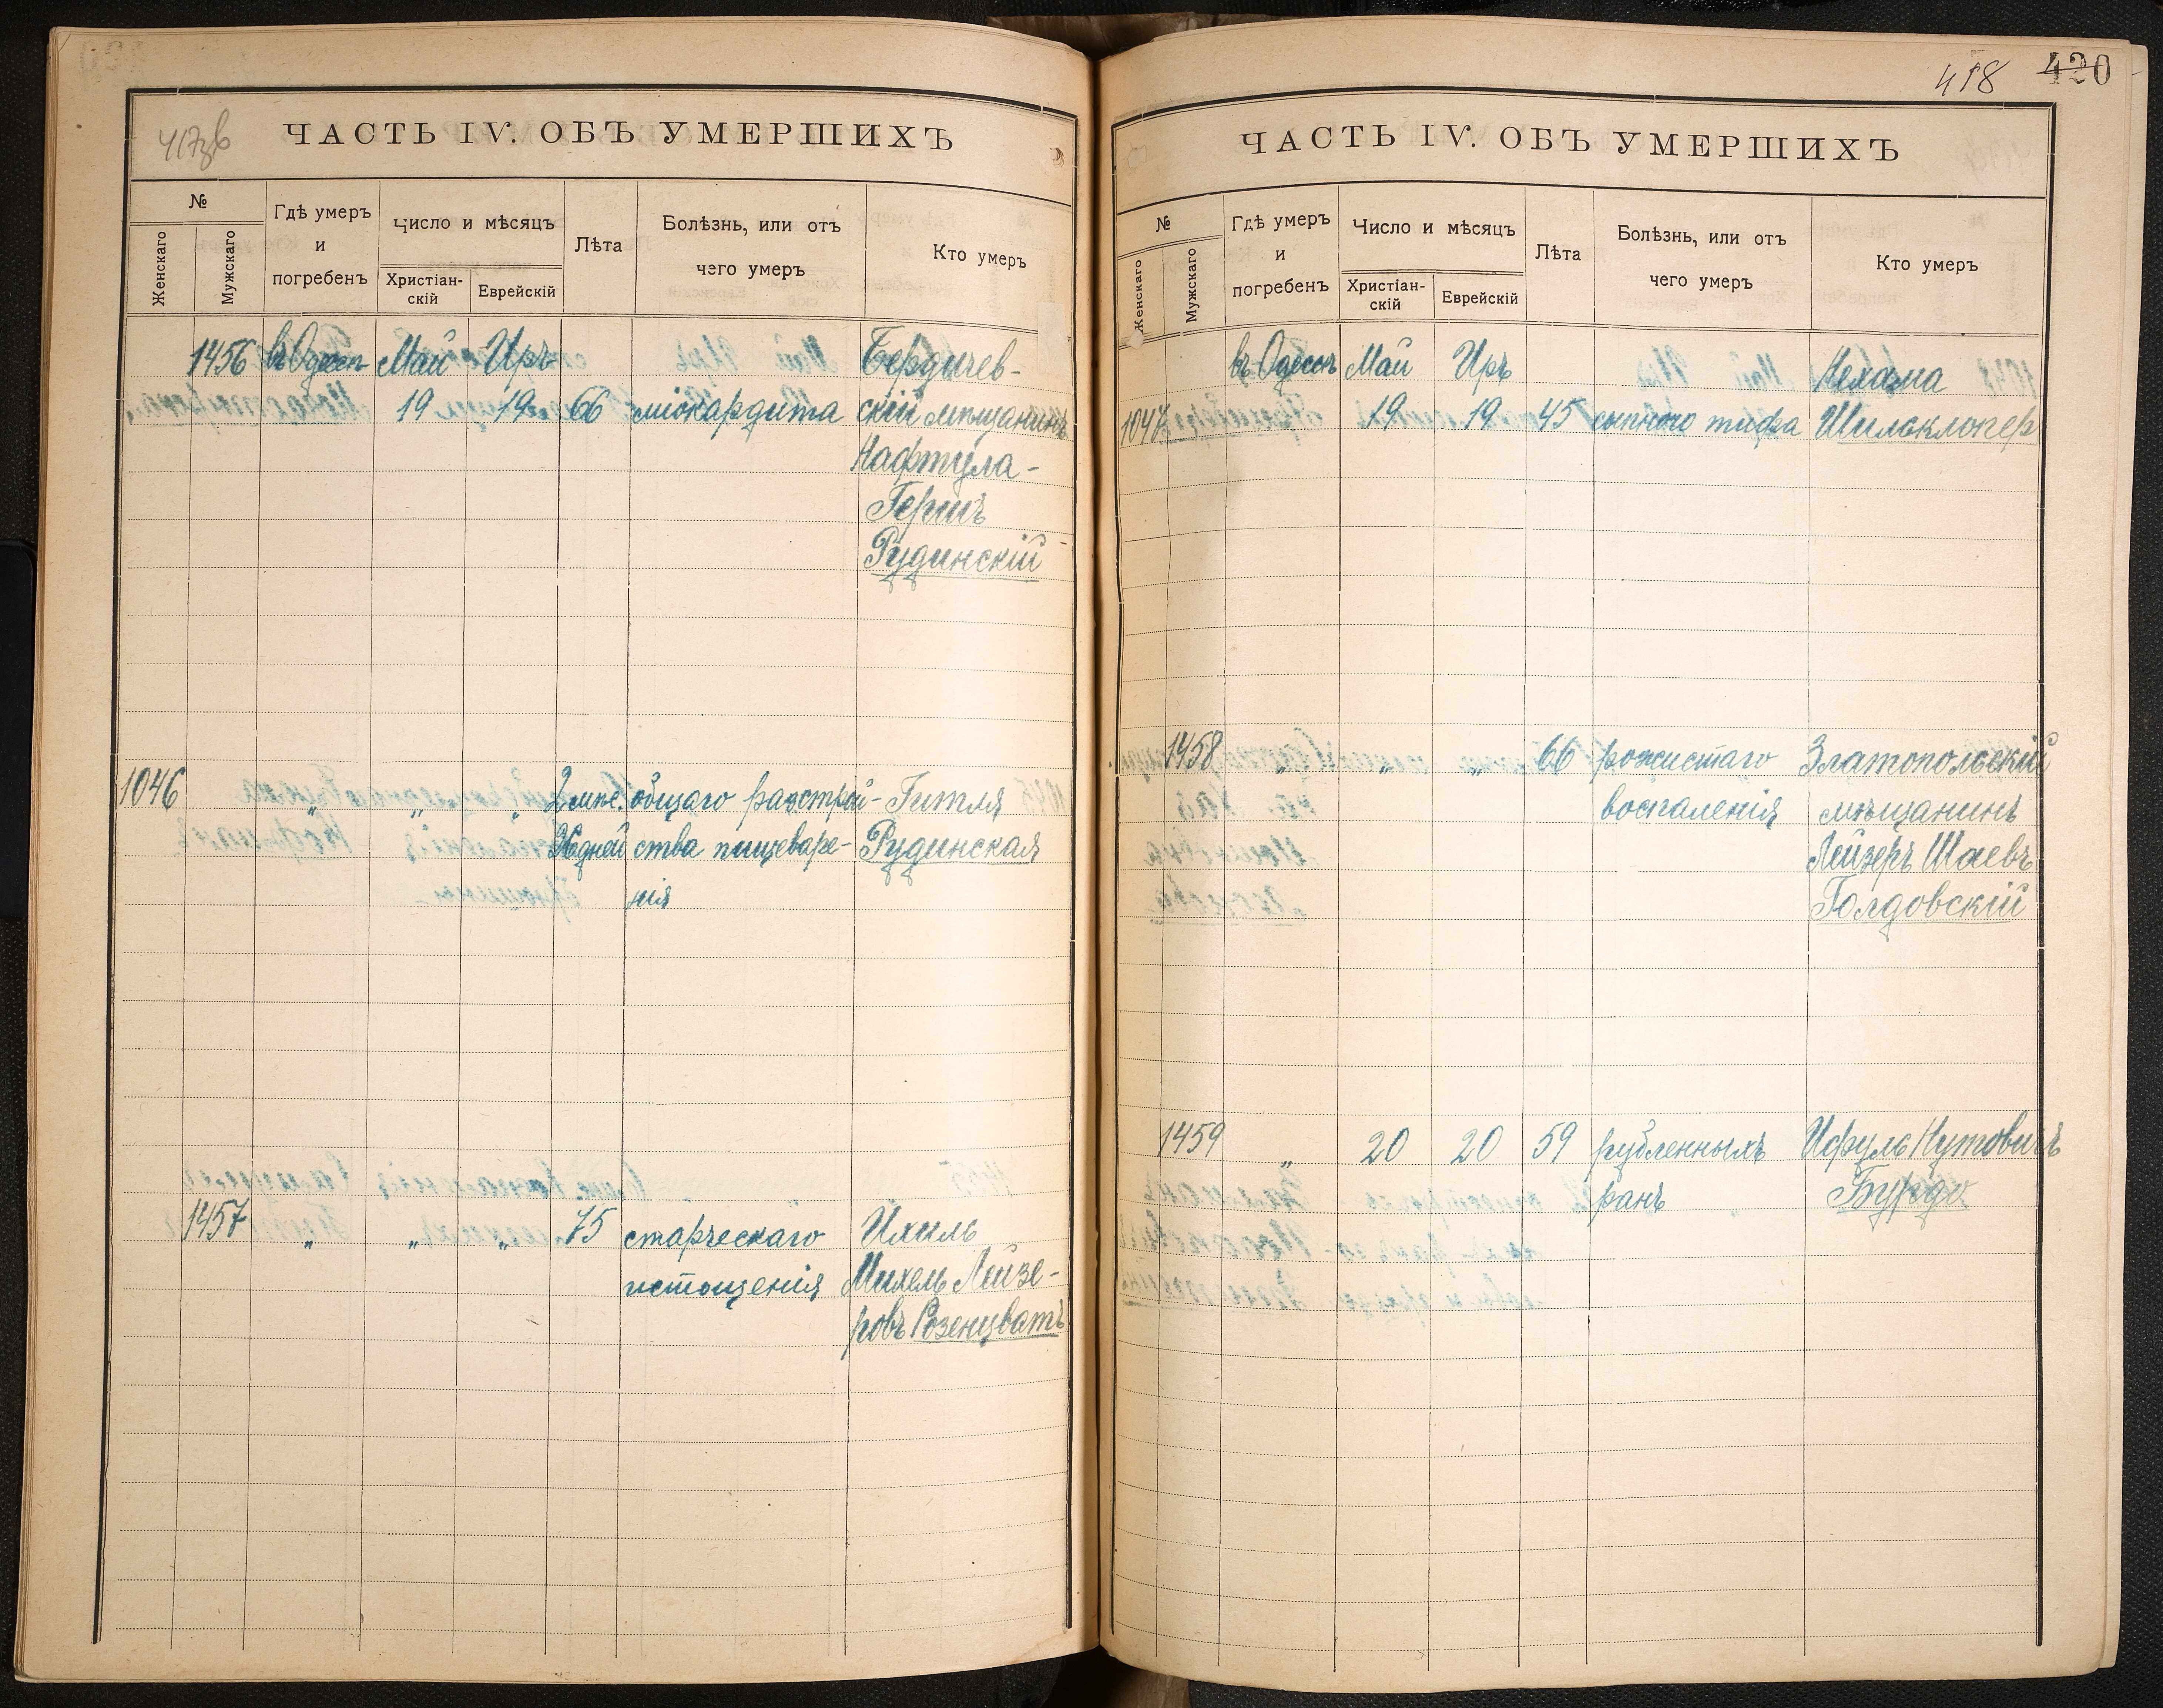 417зв
ЧАСТЬ IV. ОБЪ УМЕРШИХЪ
№
Женскаго
Мужскаго
Гдѣ умеръ
и
погребенъ
Число и мѣсяцъ
Христіан-
скій
Еврейскій
Лѣта
Болѣзнь, или отъ
чего умеръ
Кто умеръ
1456 въ Одессѣ Май Иръ Бердичев-
19 19 66 міокардита скій мѣщанинъ
Нафтула-
Гершъ
Рудинскій
1046 " " " 2 мѣс. общаго разстрой- Гитля
26 дней ства пищеваре- Рудинская
нія
1457 " " " 75 старческаго Ихиль
истощенія Михель Лейзе-
ровъ Розенцватъ
418 420
ЧАСТЬ IV. ОБЪ УМЕРШИХЪ
№
Женскаго
Мужскаго
Гдѣ умеръ
и
погребенъ
Число и мѣсяцъ
Христіан-
скій
Еврейскій
Лѣта
Болѣзнь, или отъ
чего умеръ
Кто умеръ
въ Одессѣ Май Иръ Нехама
1047 19 19 45 сыпного тифа Шильклопер
1458 " " " 66 рожистаго Златопольскій
воспаленія мѣщанинъ
Лейзеръ Шаевъ
Голдовскій
1459 " 20 20 59 рубленныхъ Исруль Нутовичъ
ранъ Бурдо